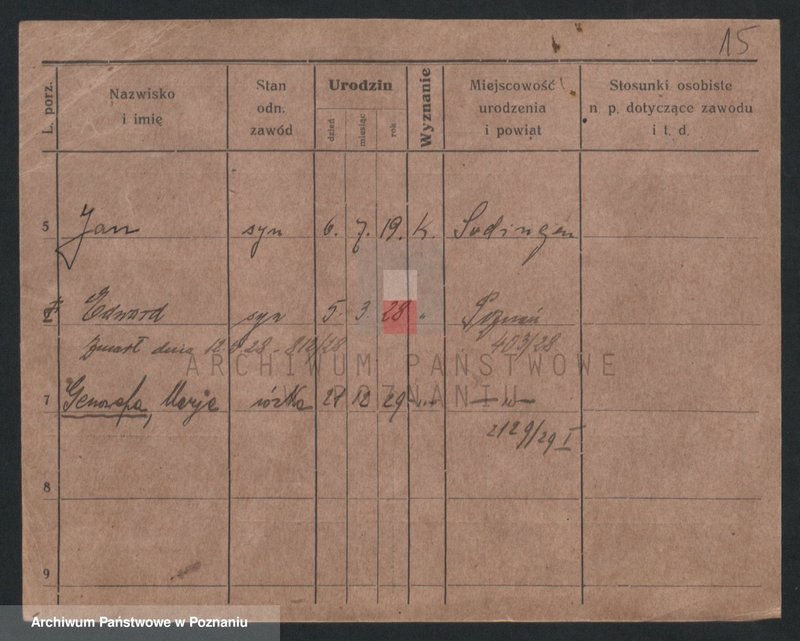 15
L. porz.
Nazwisko
i imię
Stan
odn.
zawód
Urodzin
dzień
miesiąc
rok
Wyznanie
Miejscowość
urodzenia
i powiat
Stosunki osobiste
n. p. dotyczące zawodu
i t. d.
5 Jan syn 6. 7. 19. K. Sodingen
Edward syn 5. 3. 28 " Poznań
zmarł dnia 12. 28 - 403/28
ARCHIWUM PAŃSTWOWE
W POZNANIU
7 Genowefa, Marja córka 21 12 29 " —"—
2129/29 I
8
9
Archiwum Państwowe w Poznaniu